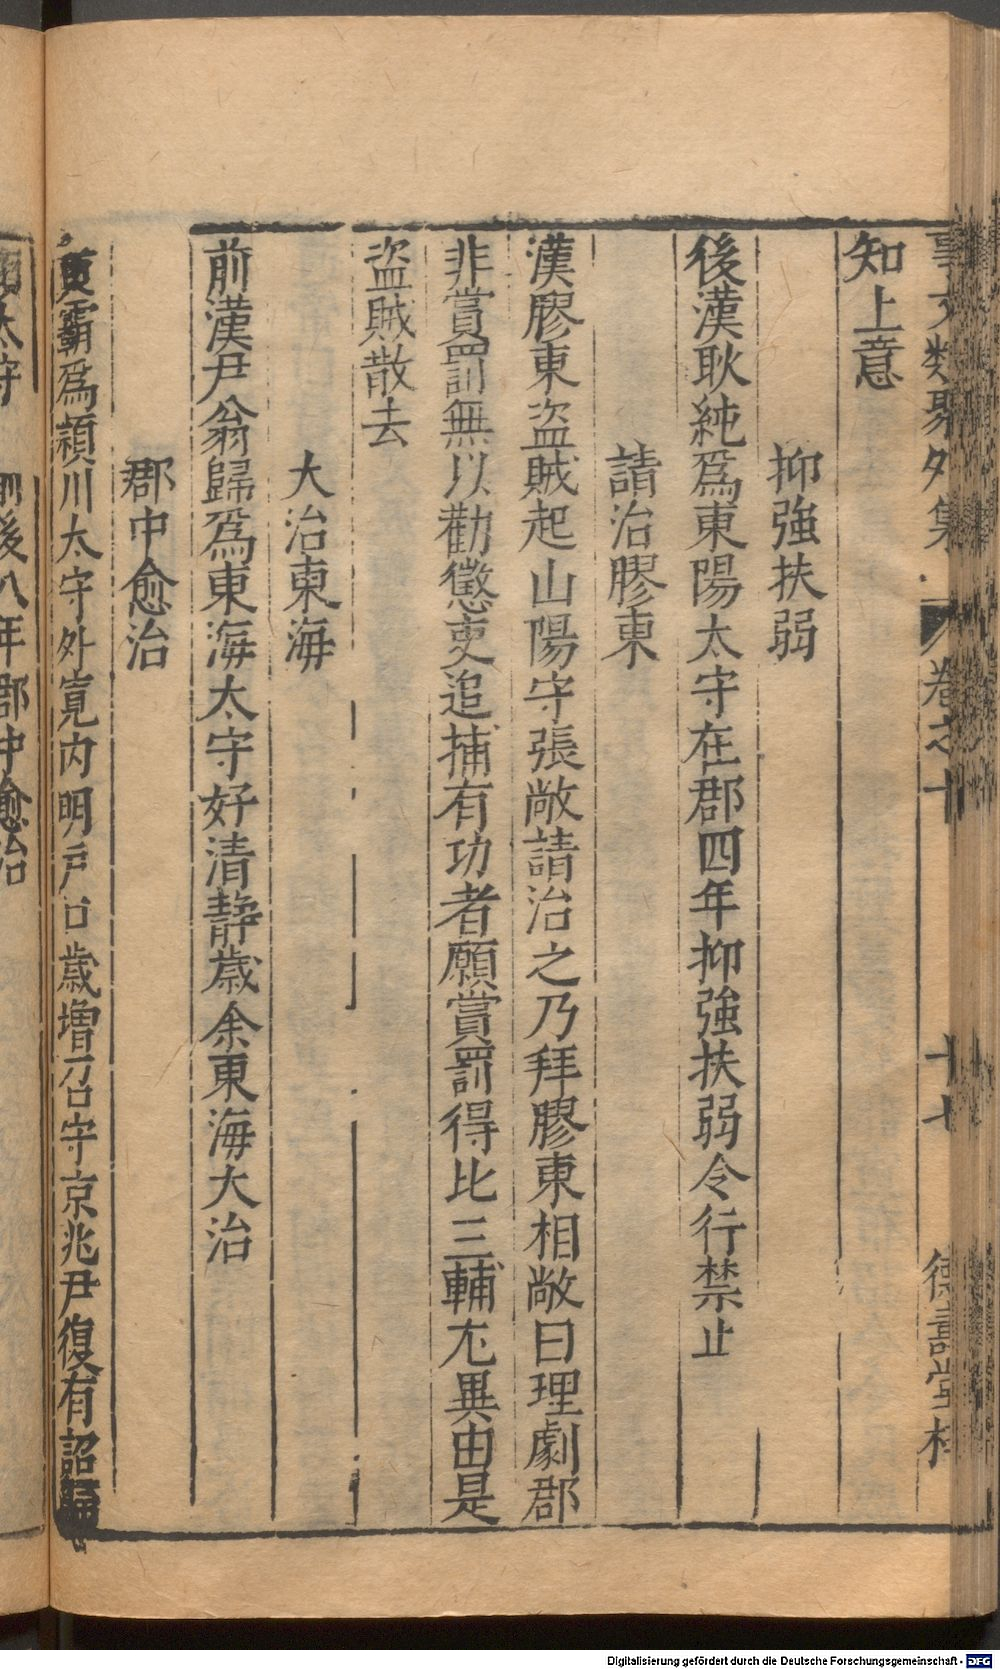 事文類聚外集 卷之十 十七 德壽堂梓
知上意
抑強扶弱
後漢耿純爲東陽太守在郡四年抑強扶弱令行禁止
請治膠東
漢膠東盜賊起山陽守張敞請治之乃拜膠東相敞曰理劇郡
非賞罰無以勸懲吏追捕有功者願賞罰得比三輔尤異由是
盜賊散去
大治東海
前漢尹翁歸爲東海太守好清静歲余東海大治
郡中愈治
黄霸爲潁川太守外寬内明戸口歲增召守京兆尹復有詔歸
太守 前後八年郡中愈治
Digitalisierung gefördert durch die Deutsche Forschungsgemeinschaft - DFG